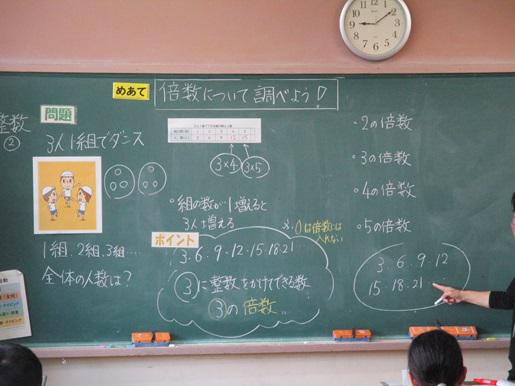 めあて
倍数について調べよう!
整数
②
問題
3人1組でダンス
1組、2組、3組…
全体の人数は?
3×4 3×5
・組の数が1増えると
3人増える
ポイント
3・6・9・12・15・18・21
③に整数をかけてできる数
③の倍数
0は倍数には
入れない
・2の倍数
・3の倍数
・4の倍数
・5の倍数
3・6・9・12
15・18・21